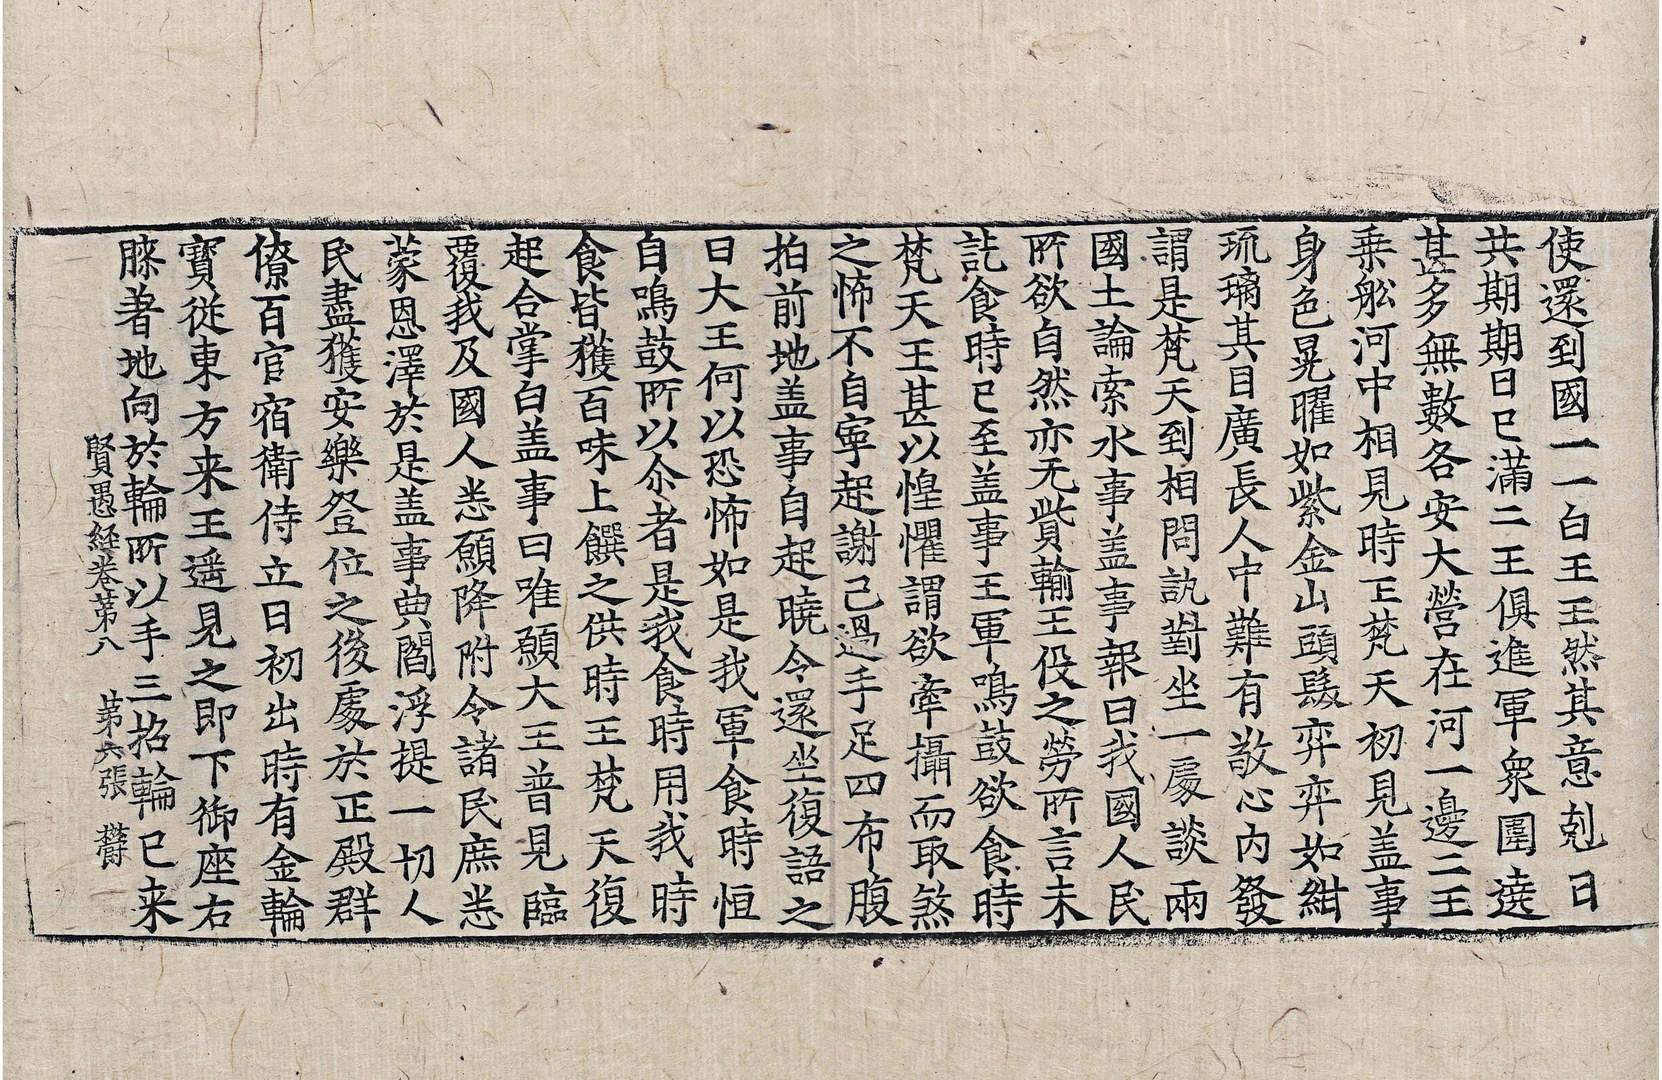 使還到國一一白王王然其意剋日
共期期日已滿二王俱進軍衆圍遶
甚多無數各安大營在河一邊二王
乗舩河中相見時正梵天初見盖事
身色晃曜如紫金山頭髮弈弈如紺
琉璃其目廣長人中難有敬心内發
謂是梵天到相問訊對坐一處談兩
國土論索水事盖事報曰我國人民
所欲自然亦无貲輸王役之勞所言未
訖食時已至盖事王軍鳴鼓欲食時
梵天王甚以惶懼謂欲牽攝而取煞
之怖不自寧起謝己過手足四布腹
拍前地盖事自起曉令還坐復語之
曰大王何以恐怖如是我軍食時恒
自鳴鼓所以尒者是我食時用我時
食皆獲百味上饌之供時王梵天復
起合掌白盖事曰唯願大王普見臨
覆我及國人悉願降附令諸民庶悉
蒙恩澤於是盖事典閻浮提一切人
民盡獲安樂登位之後處於正殿群
僚百官宿衛侍立日初出時有金輪
寶従東方来王遥見之即下御座右
膝著地向於輪所以手三招輪已来
賢愚経巻苐八　苐六張　欝